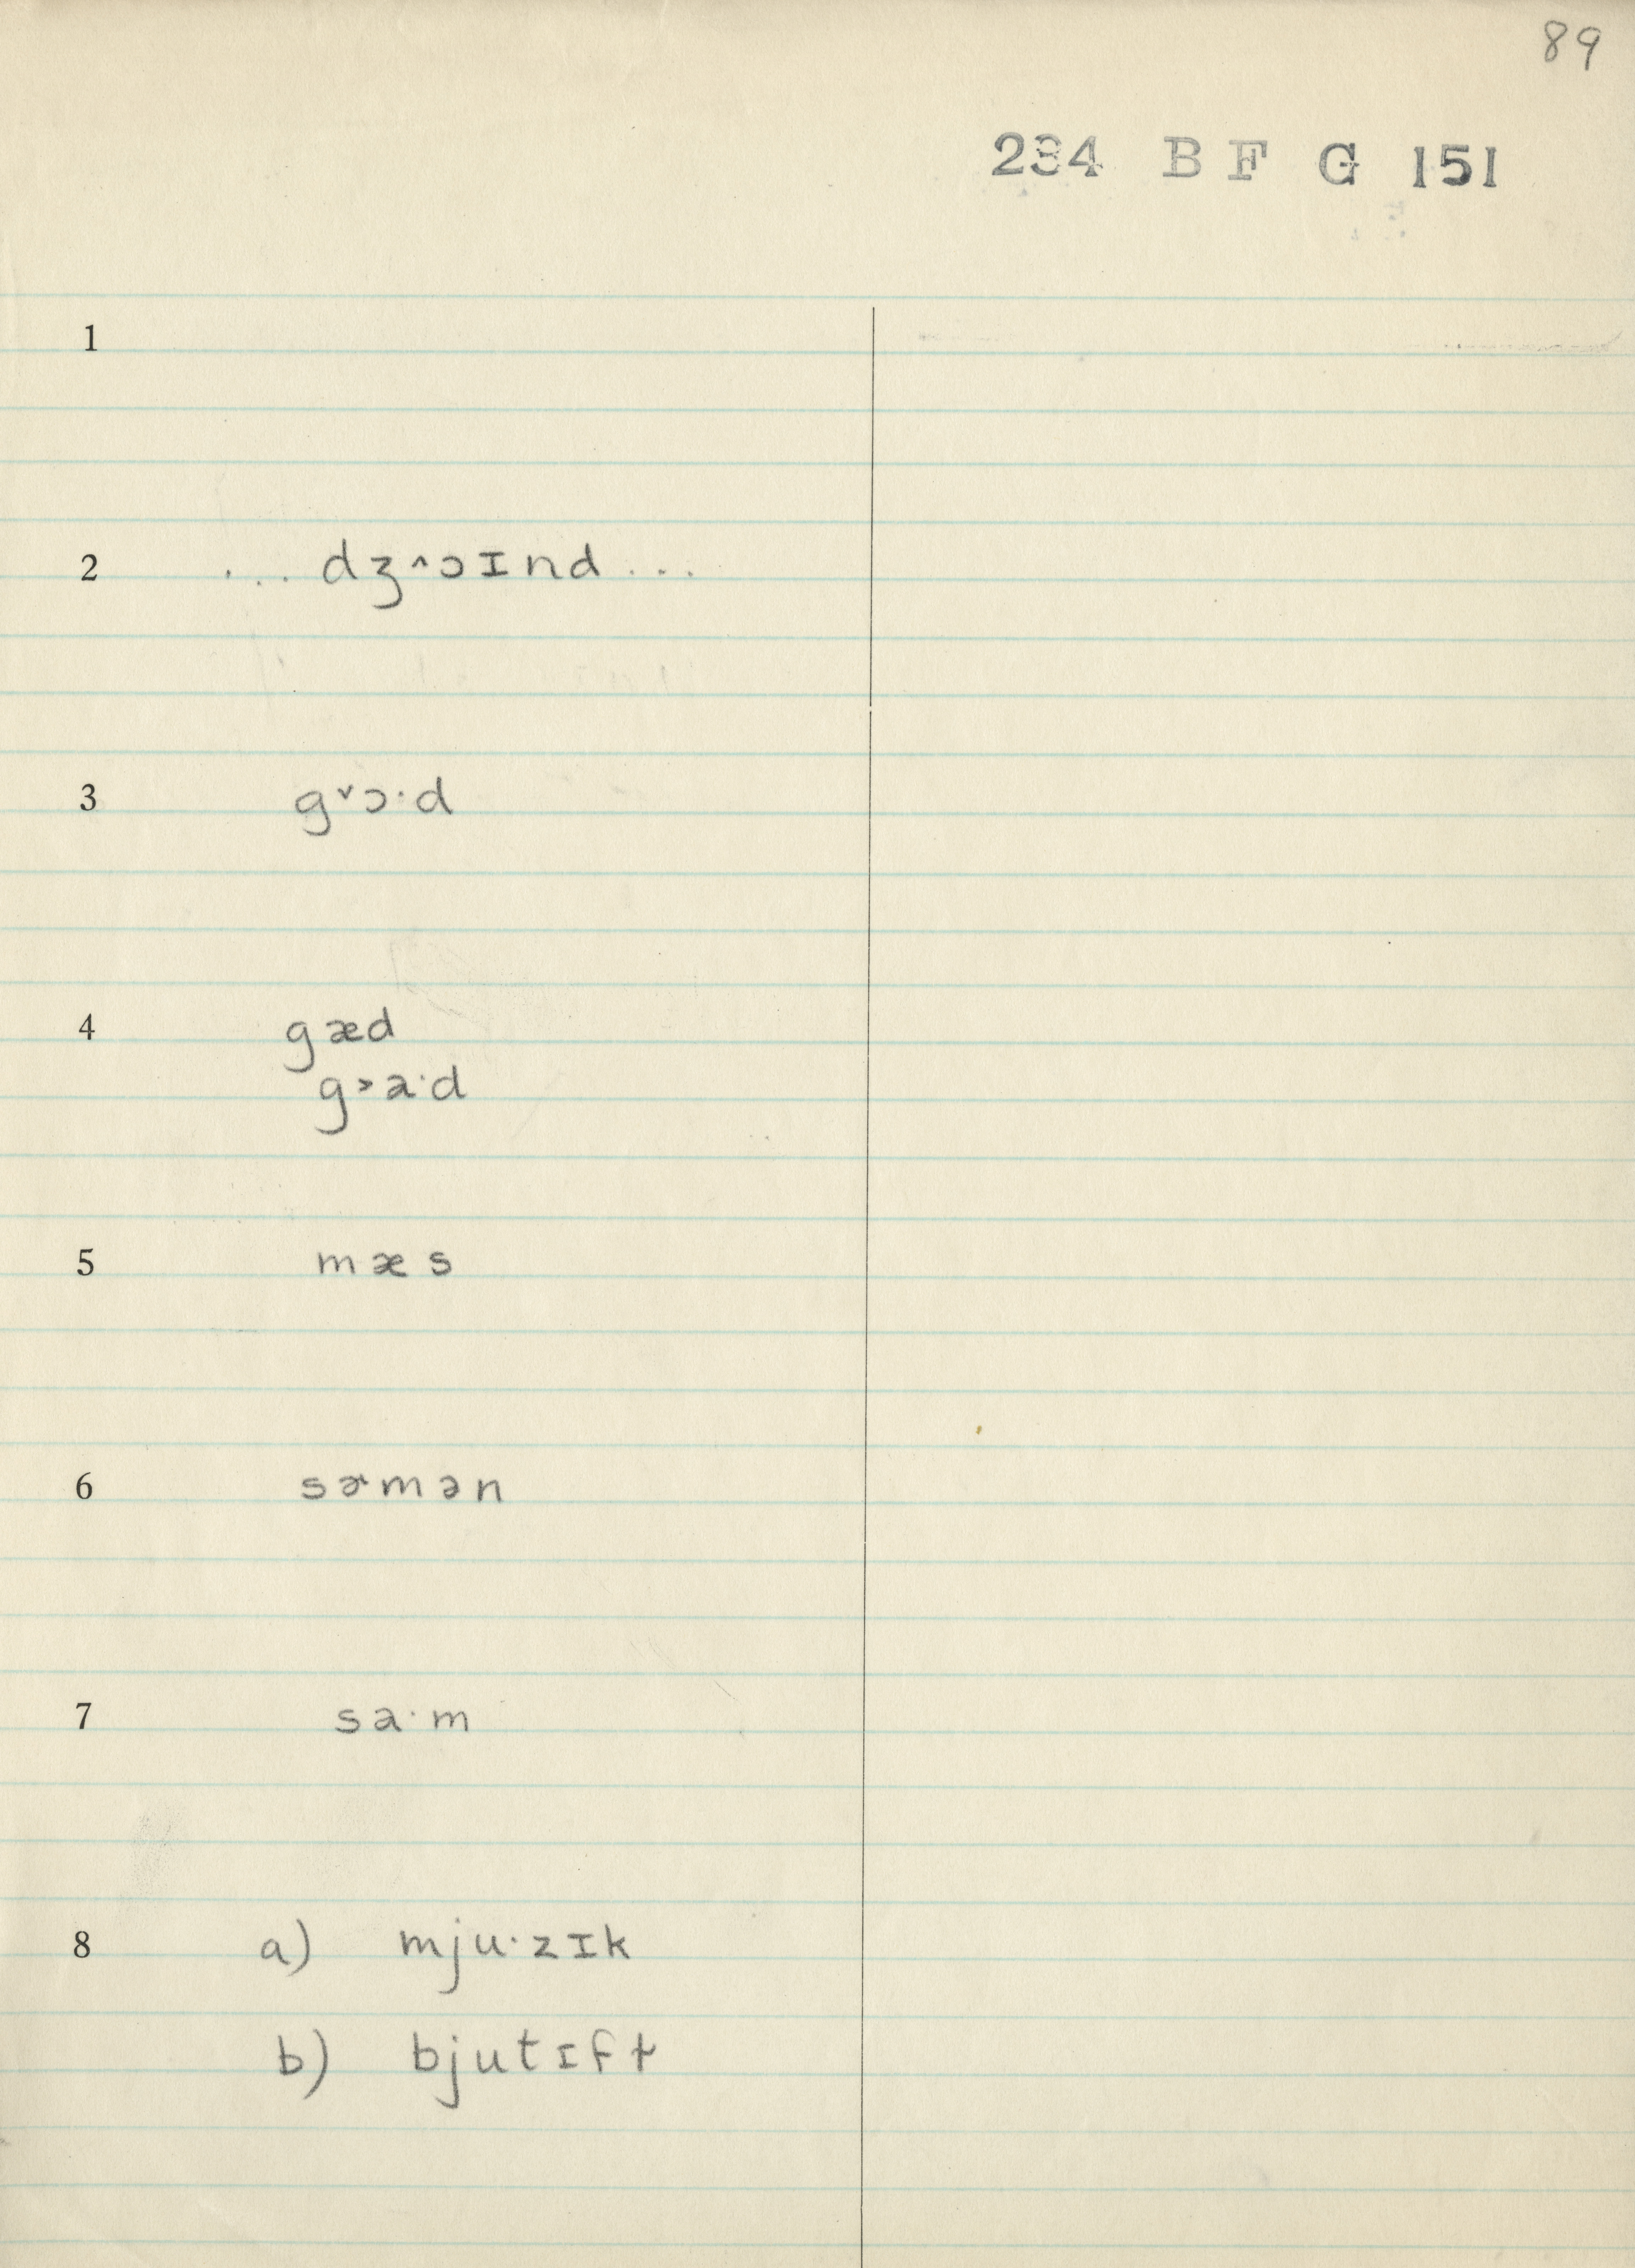 89
234 BF G 151
1
2 ... dʒ˄ɔɪnd ...
3 g˅ɔ·d
4 gæd
g˃a·d
5 mæs
6 sɚmən
7 sa·m
8 a) mju·zɪk
b) bjutɪfɫ